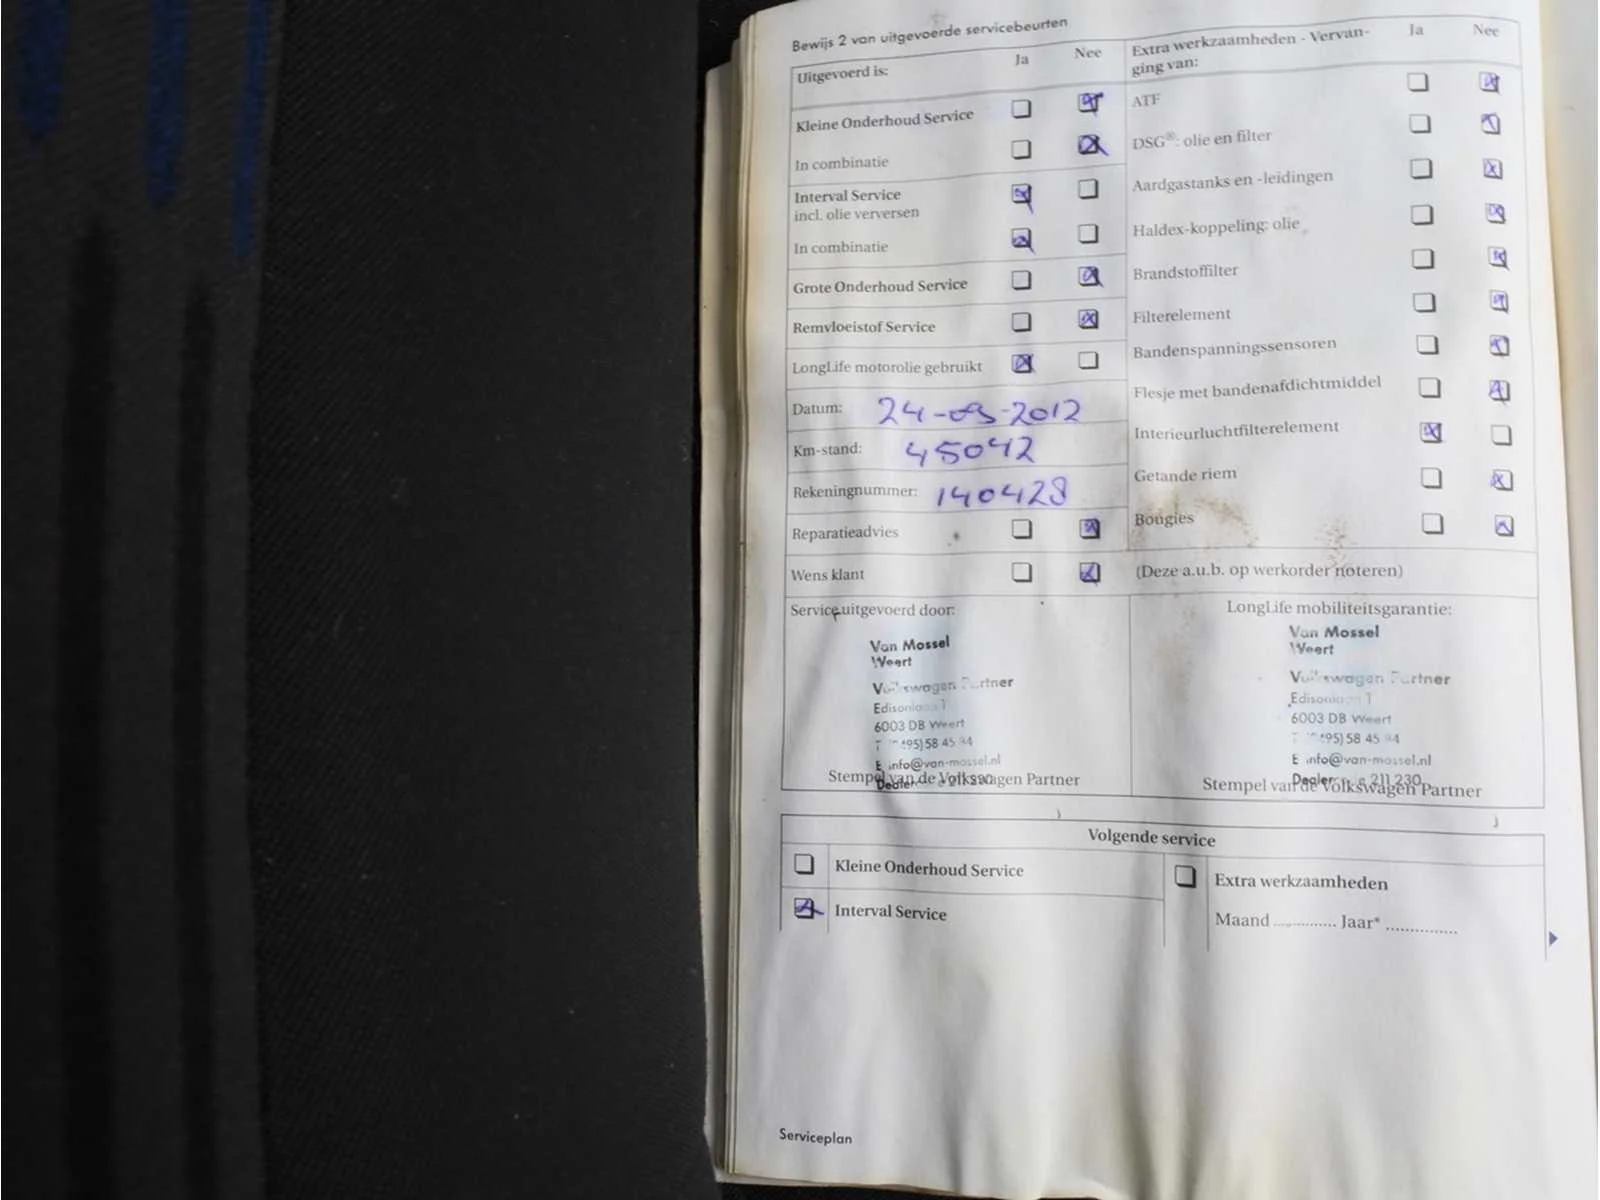 Bewijs 2 van uitgevoerde servicebeurten
Uitgevoerd is: Ja Nee
Kleine Onderhoud Service
In combinatie
Interval Service
incl. olie verversen
In combinatie
Grote Onderhoud Service
Remvloeistof Service
LongLife motorolie gebruikt
Datum: 24-09-2012
Km-stand: 45042
Rekeningnummer: 140428
Reparatieadvies
Wens klant
Extra werkzaamheden - Vervan-
ging van:
Ja Nee
ATF
DSG®: olie en filter
Aardgastanks en -leidingen
Haldex-koppeling: olie
Brandstoffilter
Filterelement
Bandenspanningssensoren
Flesje met bandenafdichtmiddel
Interieurluchtfilterelement
Getande riem
Bougies
(Deze a.u.b. op werkorder noteren)
Service uitgevoerd door:
Van Mossel
Weert
Volkswagen Partner
6003 DB Weert
E info@van-mossel.nl
Stempel van de Volkswagen Partner
LongLife mobiliteitsgarantie:
Van Mossel
Weert
Volkswagen Partner
6003 DB Weert
E info@van-mossel.nl
Dealer 211 230
Stempel van de Volkswagen Partner
Volgende service
Kleine Onderhoud Service
Interval Service
Extra werkzaamheden
Maand ............. Jaar* ...............
Serviceplan